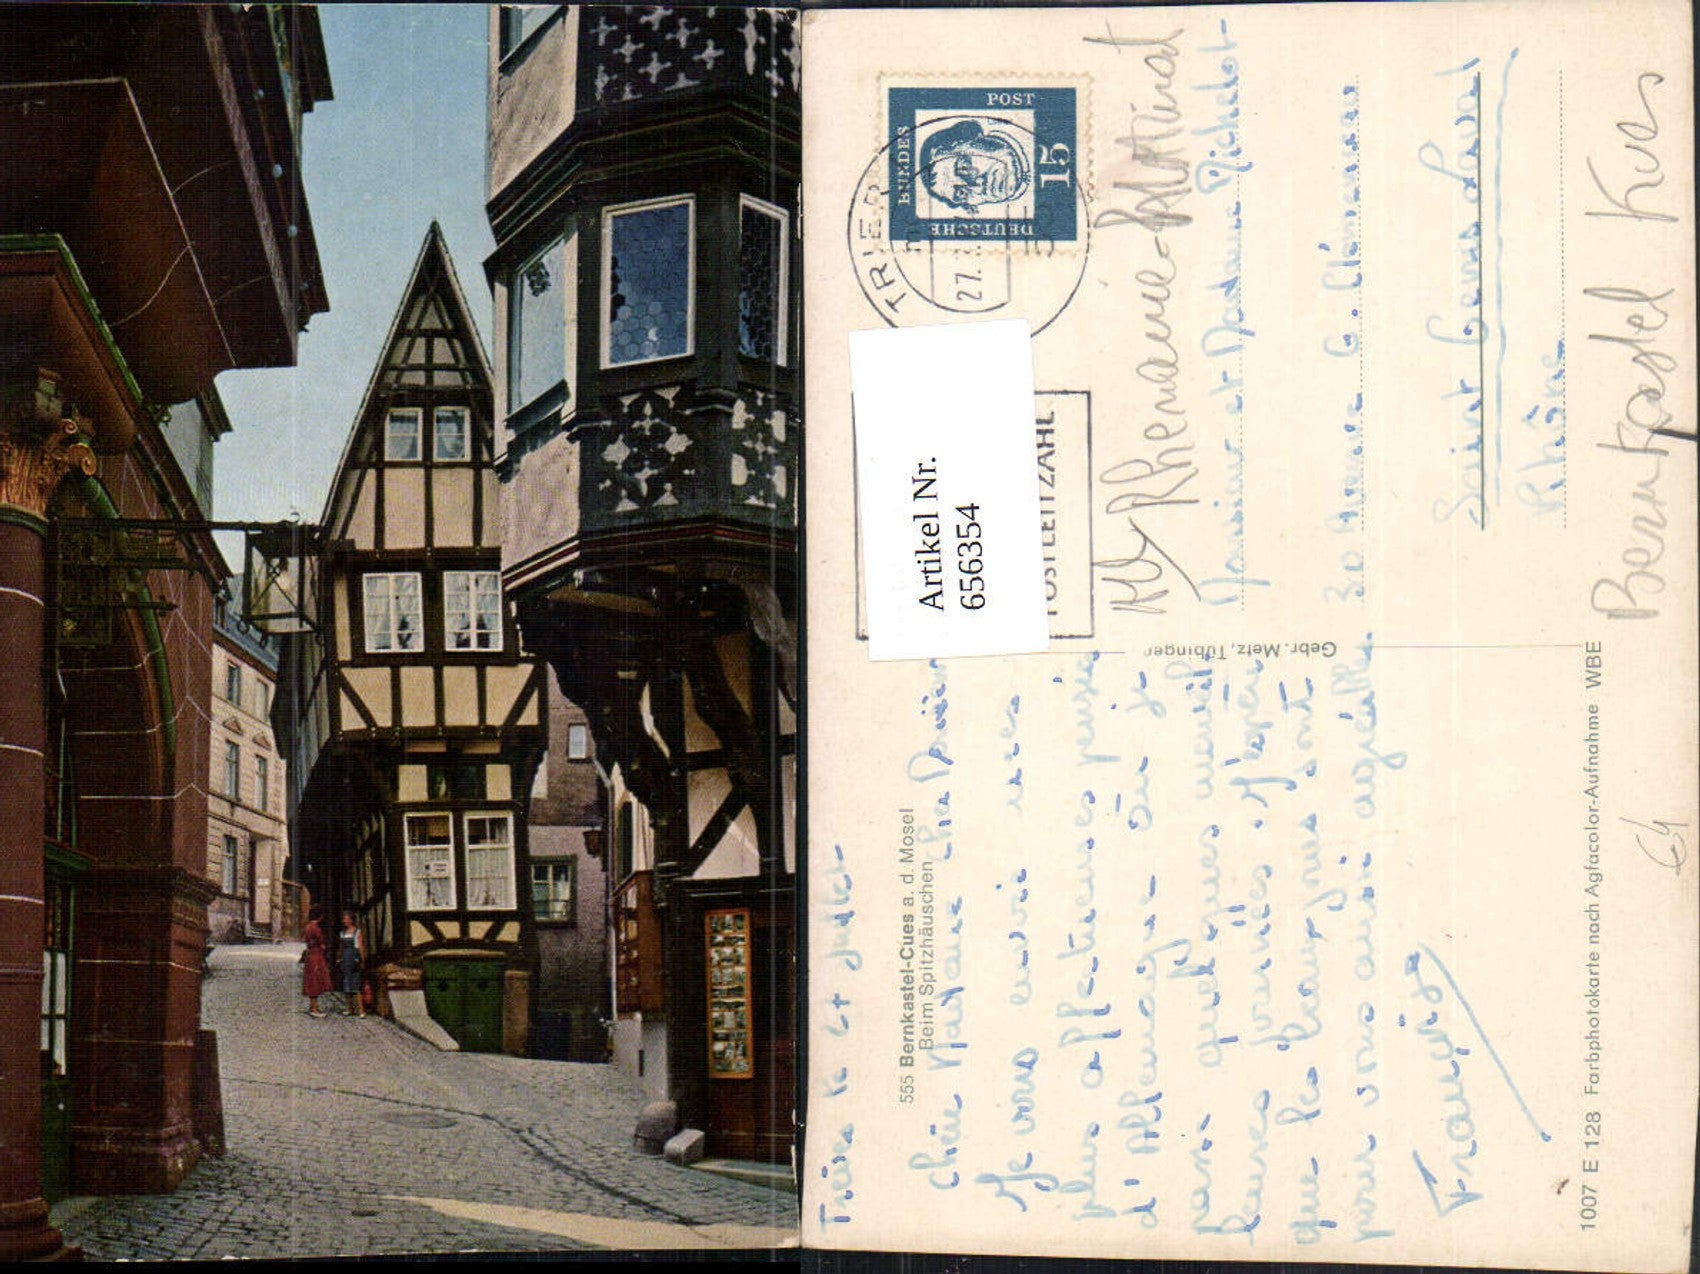 555 Bernkastel-Cues a. d. Mosel
Beim Spitzhäuschen
Trèves le 27 Juillet
Chère Madame
Je vous envoie mes
plus affectueuses pensées
d'Allemagne où je
passe quelques
journées. J'espère
que les
pour vous aussi agréable
Françoise
Gebr. Metz, Tübingen
DEUTSCHE
BUNDES
POST
15
TRIER
27.
POSTLEITZAHL
Artikel Nr.
656354
Rhénanie-Palatinat
Monsieur et Madame Michelot
30 Avenue G. Clémenceau
Saint Genis Laval
Rhône
Bernkastel Kues
1007 E 128 Farbphotokarte nach Agfacolor-Aufnahme WBE